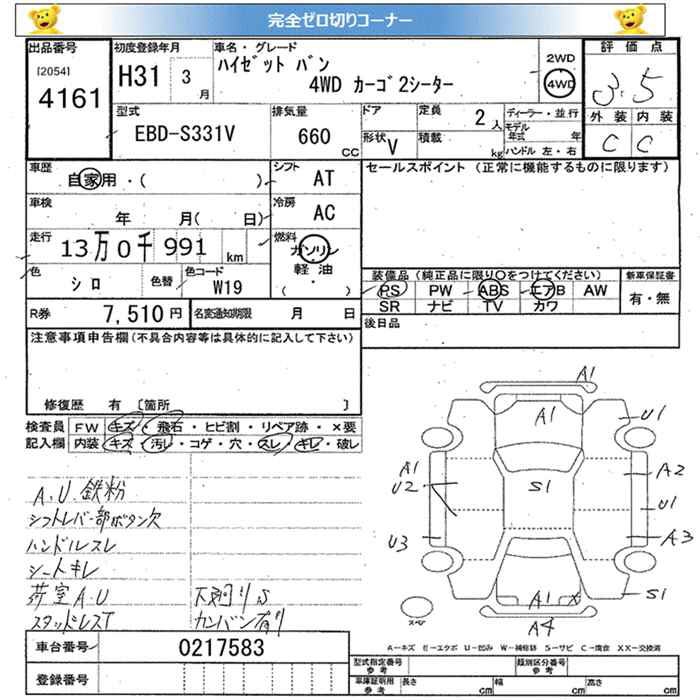 完全ゼロ切りコーナー
出品番号 [2054] 4161
初度登録年月 H31 3 月
車名・グレード ハイゼット バン
4WD カーゴ2シーター
2WD 4WD
評価点 3.5
型式 EBD-S331V
排気量 660 CC
ドア
形状 V
定員 2 人
積載 kg
ディーラー・並行
モデル年式 年
ハンドル 左・右
外装 内装
C C
車歴 自家用・( )
シフト AT
セールスポイント (正常に機能するものに限ります)
車検 年 月( 日)
冷房 AC
走行 13万0千991 km
燃料 ガソリン
軽油
( ・ )
色 シロ 色替 色コード W19
装備品(純正品に限り○をつけてください) 新車保証書
PS PW ABS エアB AW 有・無
SR ナビ TV カワ
R券 7,510円 名変通知期限 月 日
後日品
注意事項申告欄(不具合内容等は具体的に記入して下さい)
修復歴 有 [箇所 ]
検査員 FW キズ・飛石・ヒビ割・リペア跡・×要
記入欄 内装 キズ・汚レ・コゲ・穴・スレ・キレ・破レ
A.U.鉄粉
シフトレバー部ボタン欠
ハンドルスレ
シートキレ
荷室A.U 下廻りS
スタッドレスT カンバン有り
A1
A1 U1
A1 A2
U2 S1 U1
U3 A3
A1 X S1
A4
スペア
A−キズ E−エクボ U−凹み W−補修跡 S−サビ C−腐食 XX−交換済
車台番号 0217583
登録番号
型式指定番号 参考 類別区分番号 参考
車庫証明用 参考 長さ cm 幅 cm 高さ cm